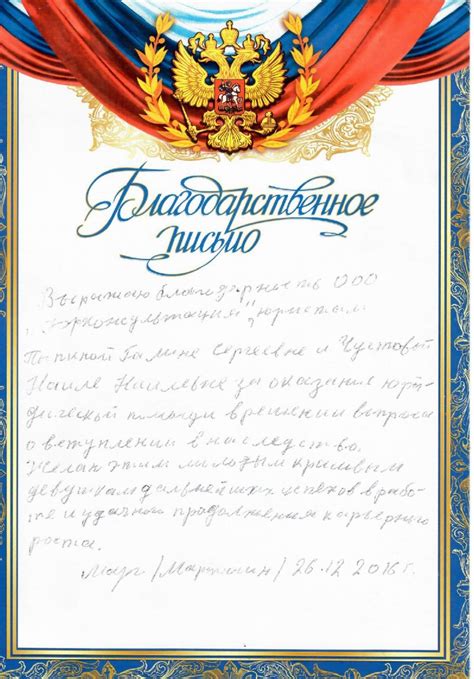 Благодарственное
письмо
Выражаю благодарность ООО
"Юрконсультация" юристам
Галине Сергеевне и
Наиле Наилевне за оказание юри-
дической помощи в решении вопроса
о вступлении в наследство.
Желаю этим милым красивым
девушкам дальнейших успехов в рабо-
те и удачного продолжения карьерного
роста.
26.12 2016 г.